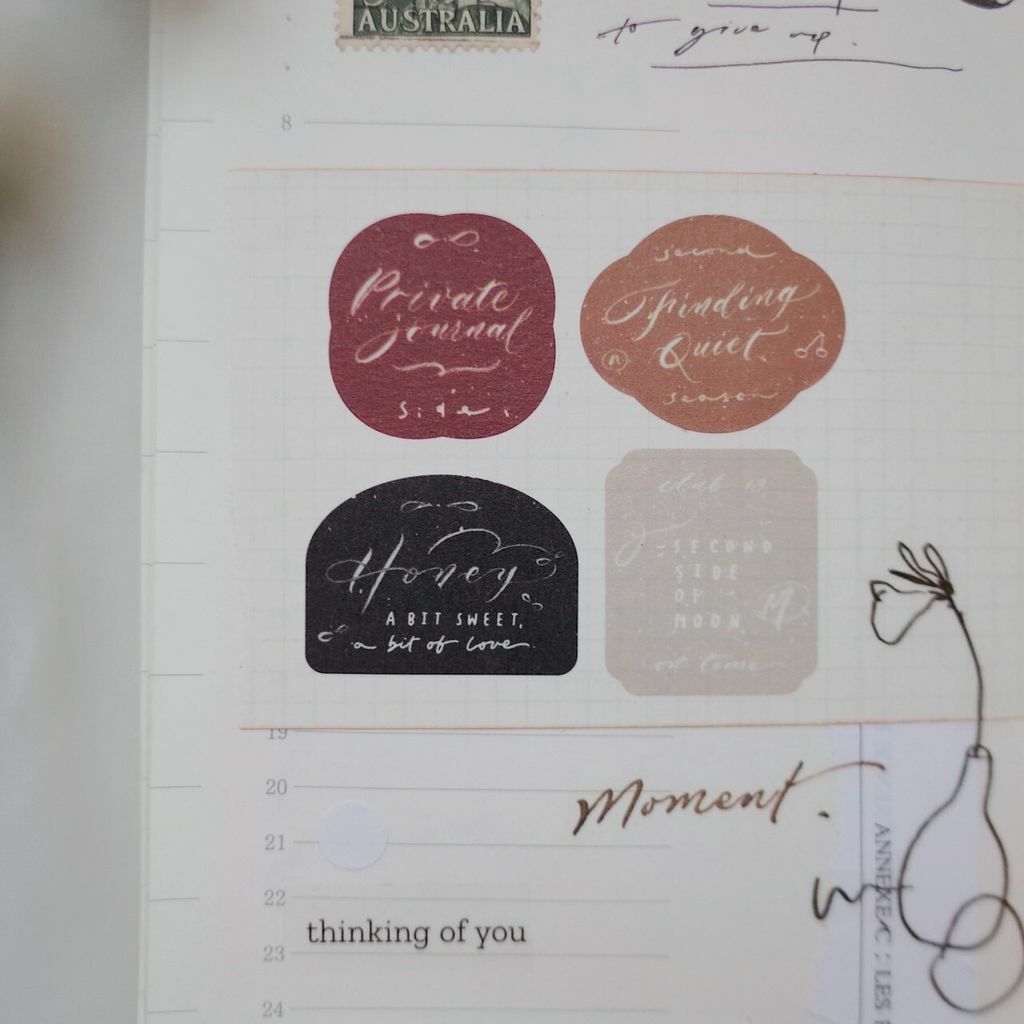 AUSTRALIA
to give up.
8
Private
journal
side.
second
Finding
Quiet
n
season
Honey
A BIT SWEET,
a bit of love
club 13
-SECOND
SIDE
OF
MOON
on time
19
20
Moment.
21
22
thinking of you
23
24
ANNEXE C : LES